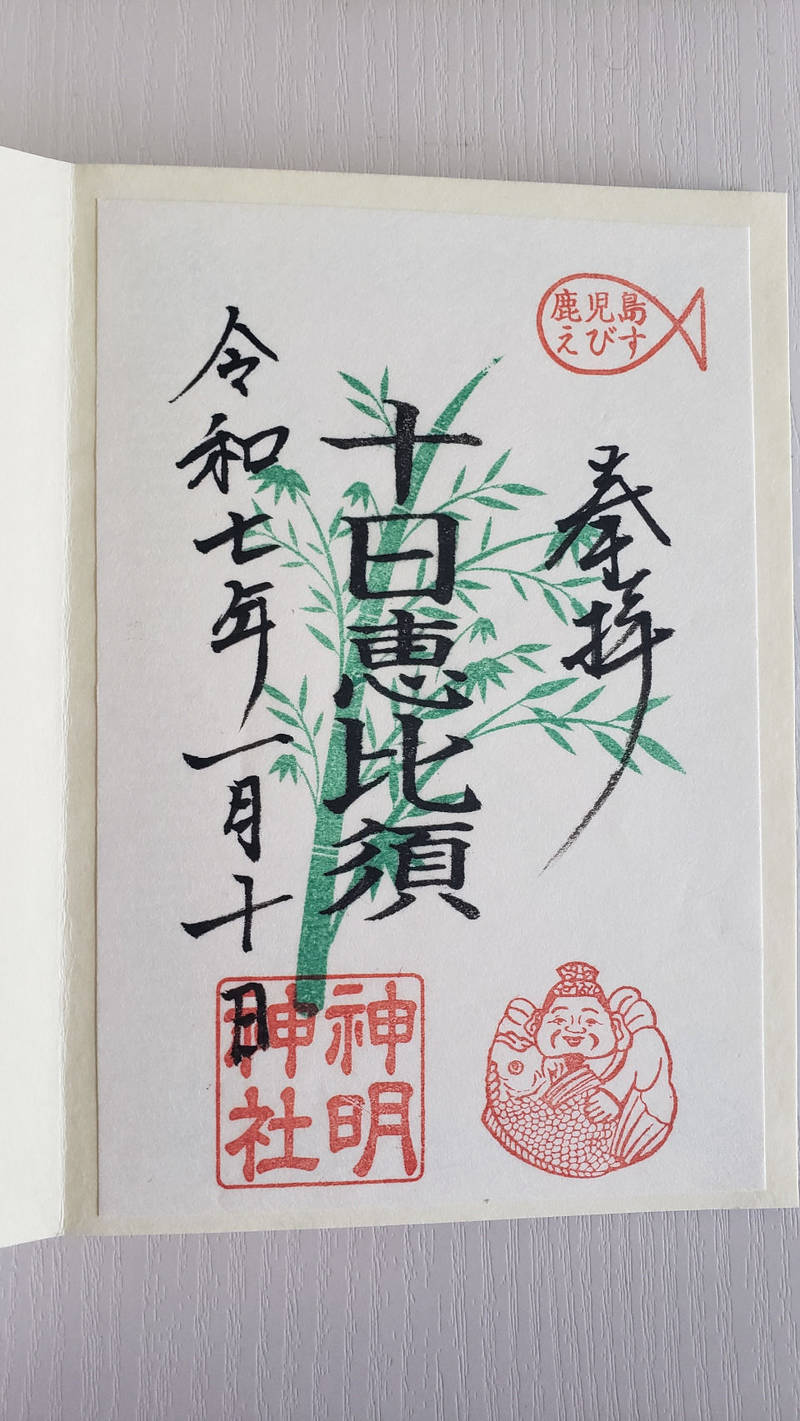 鹿児島
えびす
奉拝
十日恵比須
令和七年一月十日
神明
神社